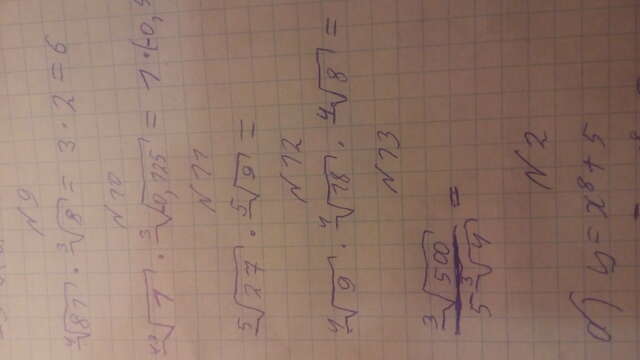 N9
⁴√81 · ³√8 = 3 · 2 = 6
N10
√1 · ³√-0,125 = 1 · (-0,
N11
⁵√27 · ⁵√9 =
N12
⁴√9 · ⁴√18 · ⁴√8 =
N13
³√500 / 5³√4 =
N2
d) y = x⁸ + 5